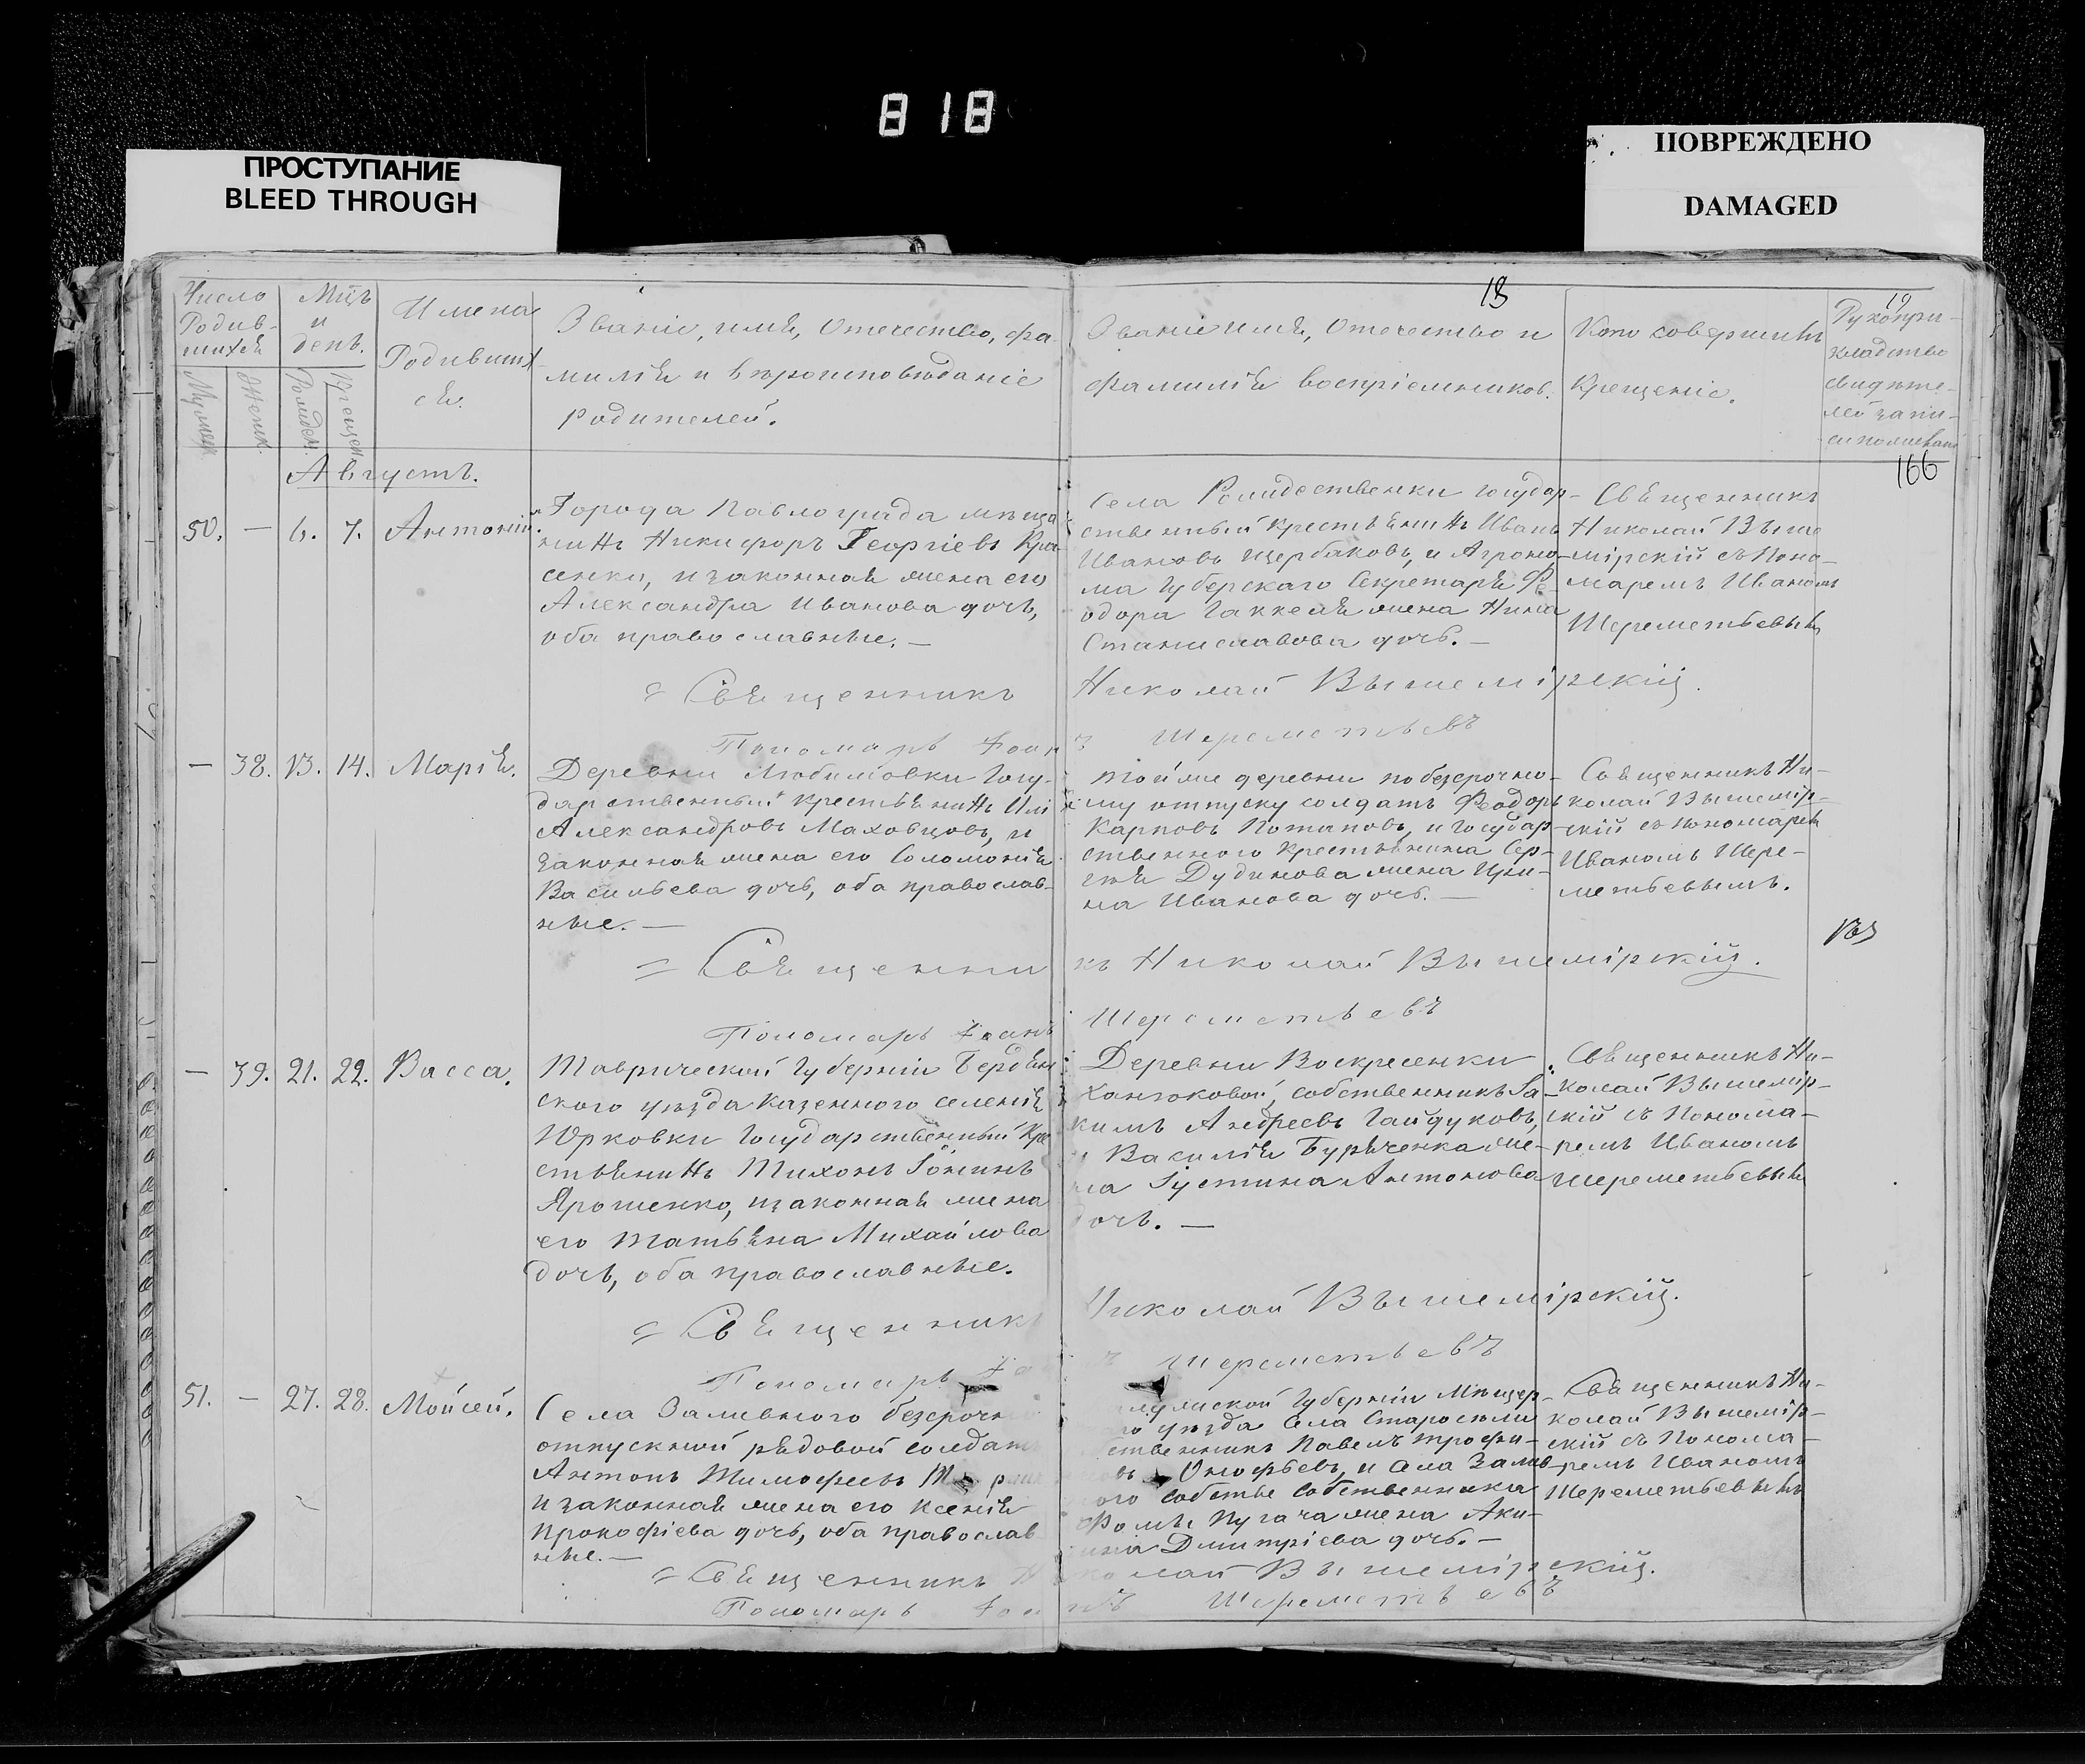 818
ПРОСТУПАНИЕ
BLEED THROUGH
ПОВРЕЖДЕНО
DAMAGED
Число
Родив-
шихся
Мужеск.
Женск.
Мцъ
и
день.
Рожден.
Крещен.
Имена
Родивших
ся.
Званіе, имя, Отечество, фа-
милія и вѣроисповѣданіе
родителей.
18
Званіе имя, Отечество и
фамилія воспріемниковъ.
Кто совершилъ
Крещеніе.
19
Рукопри-
кладство
свидѣте-
лей запи-
си по желанію
166
Августъ.
50. — 6. 7. Антоній.
Города Павлограда мѣща
нинъ Никифоръ Георгіевъ
сенко, и законная жена его
Александра Иванова дочь,
оба православные. —
Села Рождественки государ-
ственный крестьянинъ Иванъ
Ивановъ Щербаковъ, и Агроно-
ма Губерскаго Секретаря Фе-
одора Гаккеля жена Нина
Станиславова дочь. —
Священникъ
Николай Выше
мірскій съ Поно-
маремъ Иваномъ
Шереметьевымъ
Священникъ Николай Вышемірскій.
Пономарь Іоаннъ Шереметьевъ
— 38. 13. 14. Марія.
Деревни Любимовки Госу-
дарственный крестьянинъ Илі
Александровъ Маховцовъ, и
законная жена его Соломонія
Васильева дочь, оба православ-
ные. —
той же деревни по безсрочно-
му отпуску солдатъ Феодоръ
Карповъ Потаповъ, и Государ-
ственнаго крестьянина Сер-
гѣя Дудинова жена Ири-
на Иванова дочь. —
Священникъ Ни-
колай Вышемір-
скій съ пономаремъ
Иваномъ Шере-
метьевымъ.
Священникъ Николай Вышемірскій.
Пономарь Іоаннъ Шереметьевъ
— 39. 21. 22. Васса.
Таврической Губерніи Бердян
ского уѣзда казенного селенія
Юрковки Государственный Кре
стьянинъ Тихонъ Іонинъ
Ярошенко, и законная жена
его Татьяна Михайлова
дочь, оба православные.
Деревни Воскресенки
Ханжоковой, собственникъ Іа-
кимъ Андреевъ Гайдуковъ,
и Василія Буряченка же-
на Іустина Антонова
дочь. —
Священникъ Ни-
колай Вышемір-
скій съ Понома-
ремъ Иваномъ
Шереметьевымъ
Священникъ Николай Вышемірскій.
Пономарь Шереметьевъ
51. — 27. 28. Мойсей.
Села Заливного безсрочно
отпускной рядовой солдатъ
Антонъ Тимофеевъ
и законная жена его Ксенія
Прокофіева дочь, оба православ
ные. —
Губерніи Мищер-
уѣзда Села Староселья
ственникъ Павелъ Трофи-
мовъ Онофрьевъ, и Села Залив-
ного собстве собственника
Фомы Пугача жена Аки-
лина Дмитріева дочь. —
Священникъ Ни-
колай Вышемір-
скій съ Понома-
ремъ Иваномъ
Шереметьевымъ
Священникъ Николай Вышемірскій.
Пономарь Іоаннъ Шереметьевъ